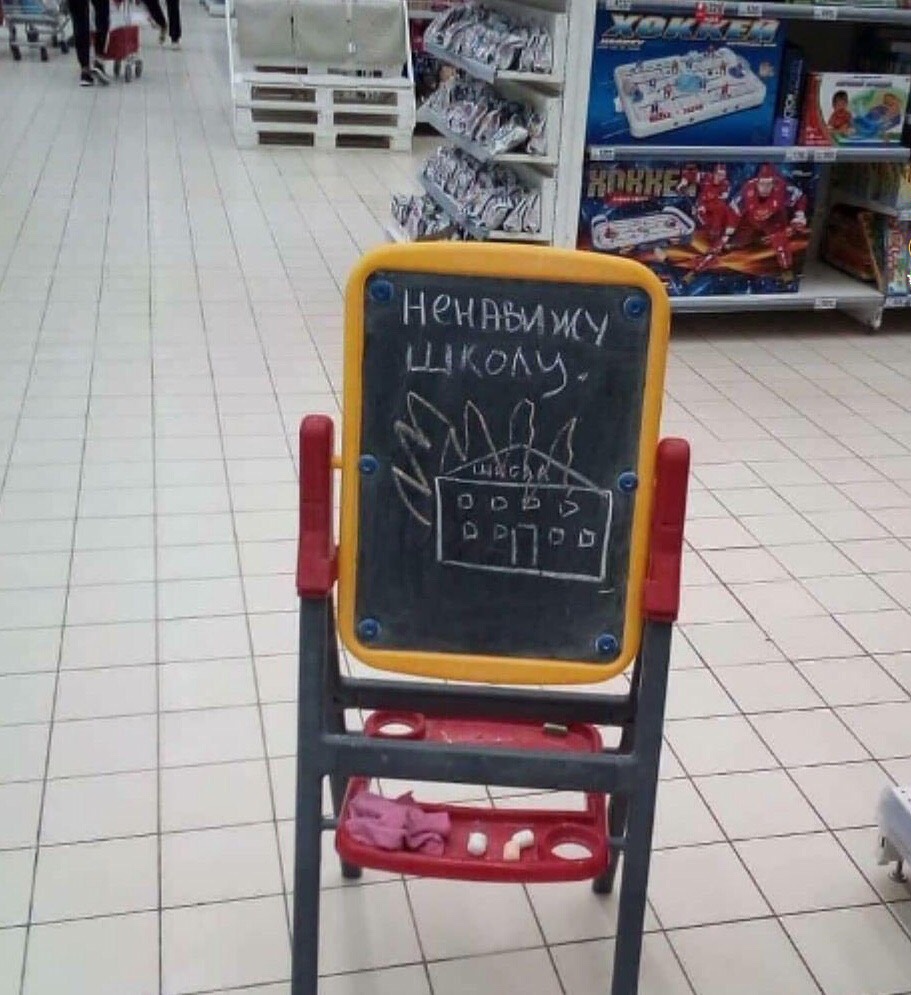 ХОККЕЙ
ХОККЕ
Ненавижу
школу.
школа